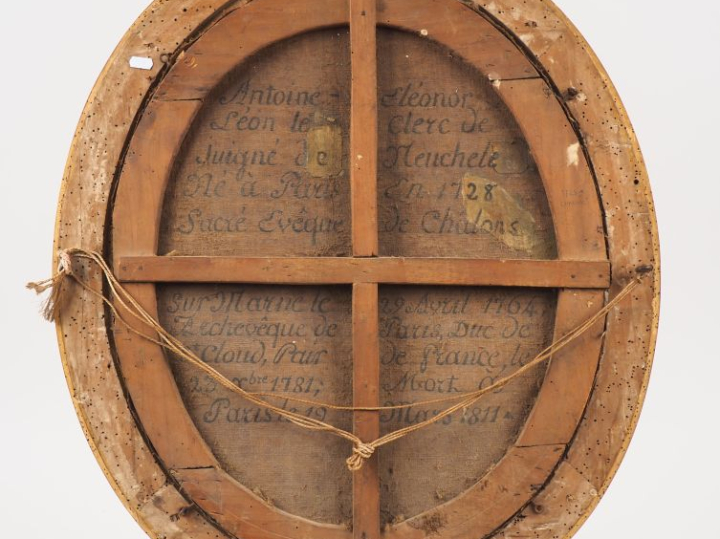 Antoine - Eléonor
Léon le Clerc de
Juigné de Neuchele
Né à Paris En 1728
Sacré Evêque de Châlons
Sur Marne le 29 Avril 1764,
Archevêque de Paris, Duc de
St Cloud, Pair de france, le
23 xbre 1781; Mort a
Paris le 19 Mars 1811.